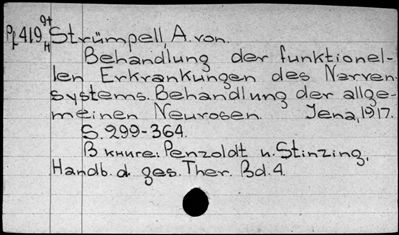 Strümpell, A. von.
Behandlung der funktionel-
len Erkrankungen des Nerven-
systems. Behandlung der allge-
meinen Neurosen. Jena, 1917.
S. 299-364.
В книге: Penzoldt u. Stinzing,
Handb. d. ges. Ther. Bd. 4.